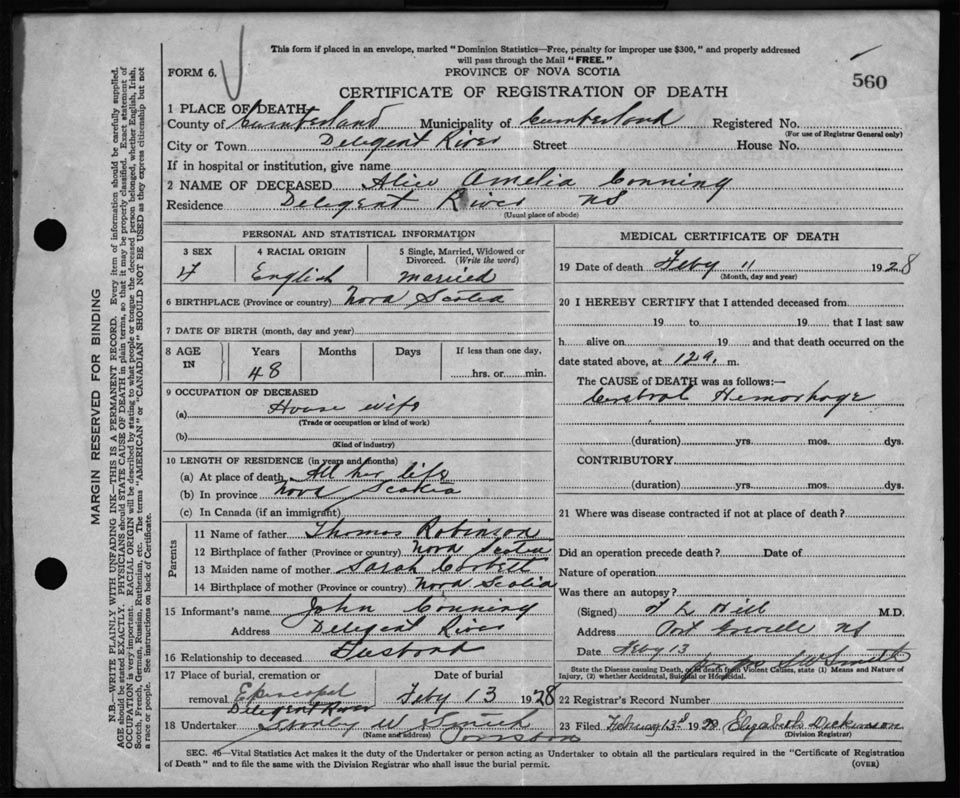 This form if placed in an envelope, marked "Dominion Statistics—Free, penalty for improper use $300," and properly addressed
will pass through the Mail "FREE."
FORM 6.
PROVINCE OF NOVA SCOTIA
560
CERTIFICATE OF REGISTRATION OF DEATH
1 PLACE OF DEATH
County of Cumberland Municipality of Cumberland Registered No.
(For use of Registrar General only)
City or Town Deligent River Street House No.
If in hospital or institution, give name
2 NAME OF DECEASED Alice Amelia Conning
Residence Deligent River NS
(Usual place of abode)
PERSONAL AND STATISTICAL INFORMATION
3 SEX 4 RACIAL ORIGIN 5 Single, Married, Widowed or
Divorced. (Write the word)
F English married
6 BIRTHPLACE (Province or country) Nova Scotia
7 DATE OF BIRTH (month, day and year)
8 AGE IN Years Months Days If less than one day,
48 hrs. or min.
9 OCCUPATION OF DECEASED
(a) House wife
(Trade or occupation or kind of work)
(b)
(Kind of industry)
10 LENGTH OF RESIDENCE (in years and months)
(a) At place of death All her life
(b) In province Nova Scotia
(c) In Canada (if an immigrant)
Parents
11 Name of father Thomas Robinson
12 Birthplace of father (Province or country) Nova Scotia
13 Maiden name of mother Sarah Corbett
14 Birthplace of mother (Province or country) Nova Scotia
15 Informant's name John Conning
Address Deligent River
16 Relationship to deceased Husbond
17 Place of burial, cremation or Date of burial
removal Episcopal Feby 13 1928
Deligent River
18 Undertaker Stanley W Smith
(Name and address)
MEDICAL CERTIFICATE OF DEATH
19 Date of death Feby 11 1928
(Month, day and year)
20 I HEREBY CERTIFY that I attended deceased from
19 to 19 that I last saw
h alive on 19 and that death occurred on the
date stated above, at 12 a. m.
The CAUSE of DEATH was as follows:—
Cerebral Hemorhage
(duration) yrs. mos. dys.
CONTRIBUTORY
(duration) yrs. mos. dys.
21 Where was disease contracted if not at place of death?
Did an operation precede death? Date of
Nature of operation
Was there an autopsy?
(Signed) Hill M.D.
Address Port NS
Date Feby 13
State the Disease causing Death, or in death from Violent Causes, state (1) Means and Nature of
Injury, (2) whether Accidental, Suicidal or Homicidal.
22 Registrar's Record Number
23 Filed February 13th 1928 Elizabeth Dickinson
(Division Registrar)
SEC. 46—Vital Statistics Act makes it the duty of the Undertaker or person acting as Undertaker to obtain all the particulars required in the "Certificate of Registration
of Death" and to file the same with the Division Registrar who shall issue the burial permit.
(OVER)
MARGIN RESERVED FOR BINDING
N.B.—WRITE PLAINLY WITH UNFADING INK—THIS IS A PERMANENT RECORD. Every item of information should be carefully supplied.
AGE should be stated EXACTLY. PHYSICIANS should STATE CAUSE OF DEATH in plain terms, so that it may be properly classified. Exact statement of
OCCUPATION is very important. RACIAL ORIGIN will be described by stating to what people or tongue the deceased person belonged, whether English, Irish,
Scotch, French, German, Russian, Ruthenian, etc. The terms "AMERICAN" or "CANADIAN" SHOULD NOT BE USED as they express citizenship but not
a race or people. See instructions on back of Certificate.